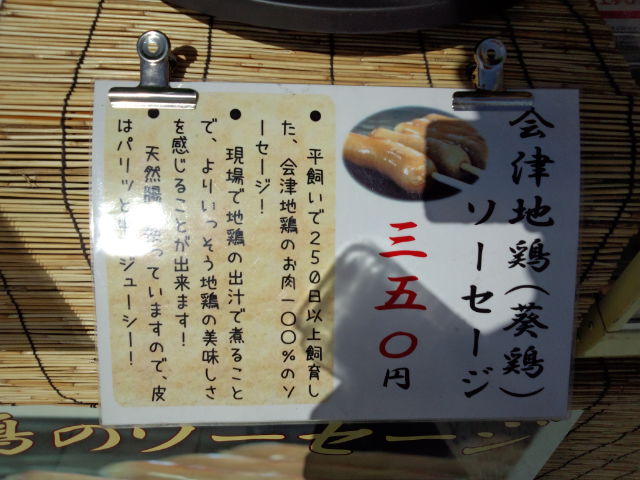 会津地鶏(葵鶏)
ソーセージ
三五〇円
● 平飼いで250日以上飼育し
た、会津地鶏のお肉一〇〇%のソ
ーセージ!
● 現場で地鶏の出汁で煮ること
で、よりいっそう地鶏の美味しさ
を感じることが出来ます!
● 天然腸 っていますので、皮
はパリッと ジューシー!
鶏のソーセージ